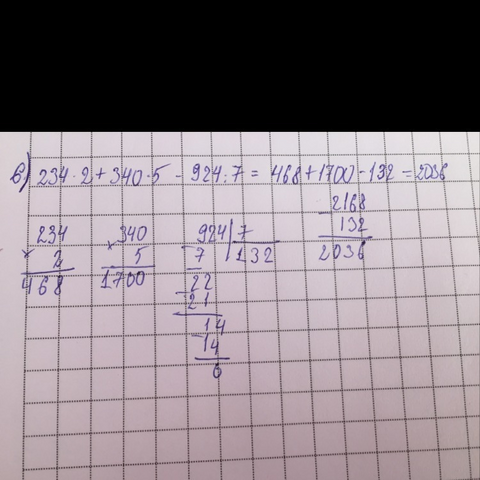 в) 234 · 2 + 340 · 5 - 924 : 7 = 468 + 1700 - 132 = 2036
234
× 2
468
340
× 5
1700
924 | 7
- 7 | 132
22
- 21
14
- 14
0
- 2168
132
2036